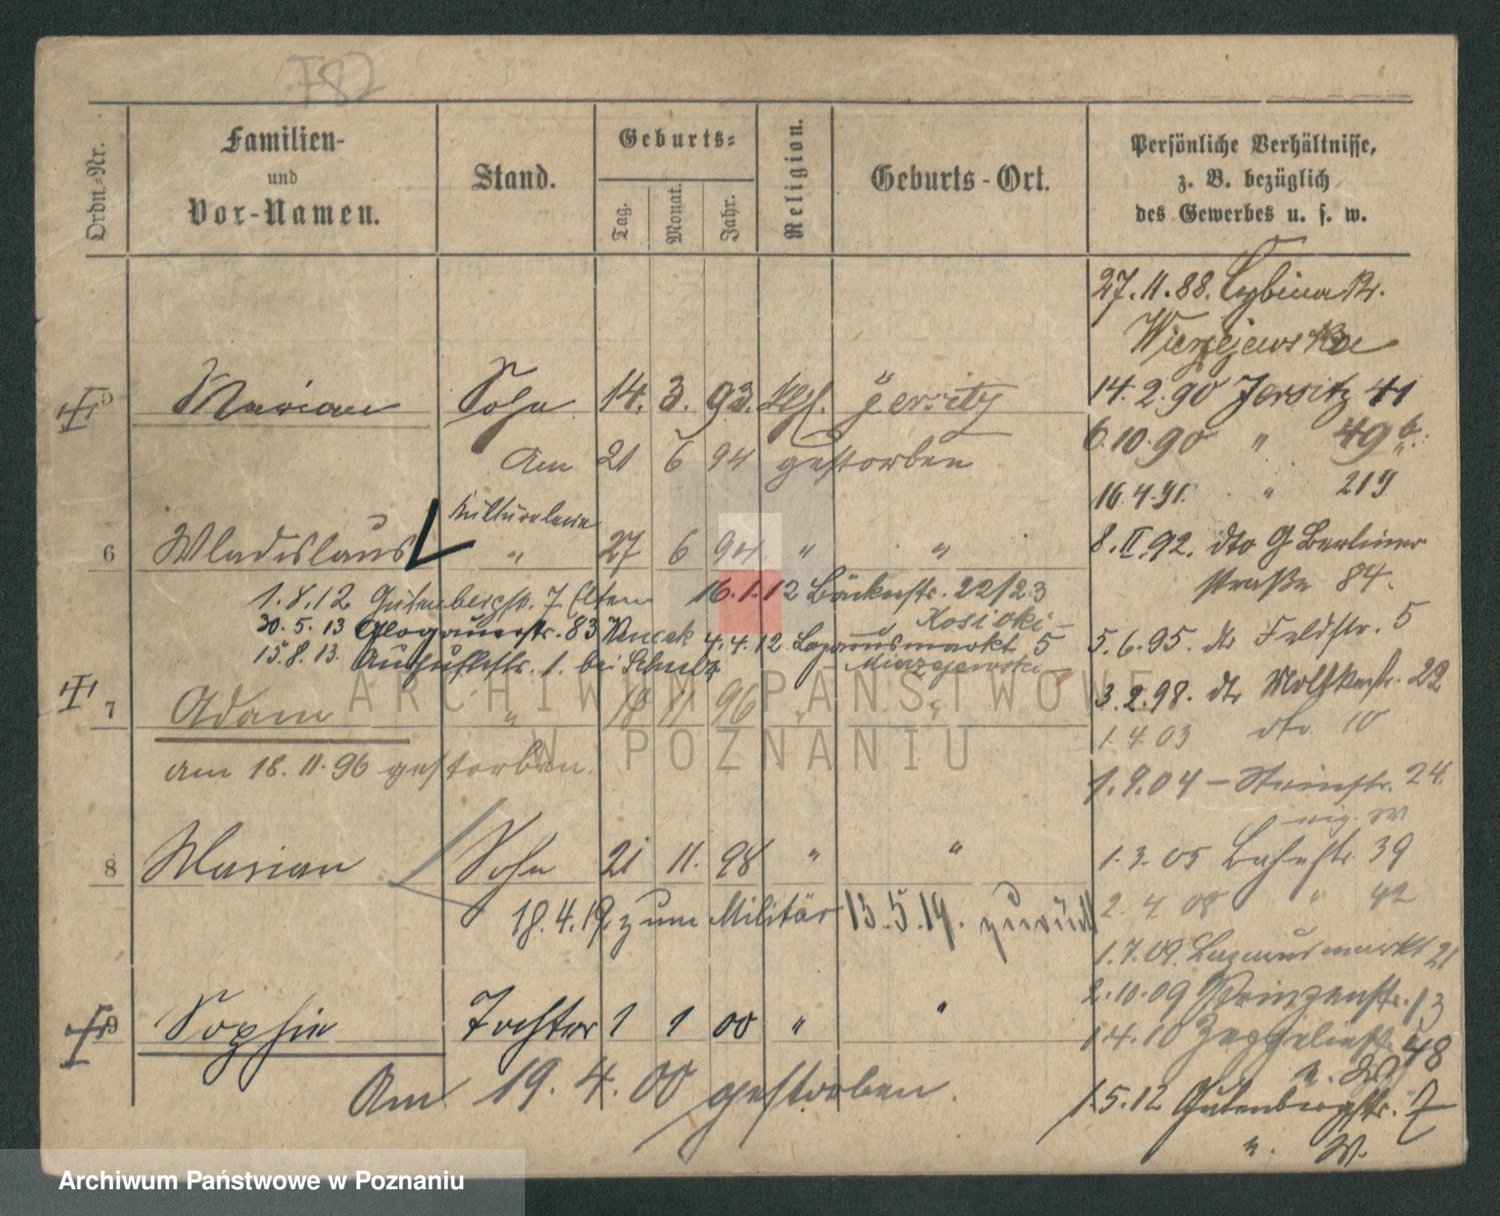 782
Ordn.-Nr.
Familien-
und
Vor-Namen.
Stand.
Geburts-
Tag.
Monat.
Jahr.
Religion.
Geburts-Ort.
Persönliche Verhältnisse,
z. B. bezüglich
des Gewerbes u. s. w.
27. 11. 88.
14. 2. 90 Jersitz 41
5 Marian Sohn 14. 3. 93. kth. Jersitz
6. 10. 90 " 49b.
Am 21 6 94 gestorben
16. 4. 91. " 219
6 Wladislaus " 27 6 94 " "
8. II 92. dto G Berliner
straße 84.
1. 8. 12 Gutenbergstr. 7 Eltern 16. 1. 12 Bäckerstr. 22/23
Kosicki
30. 5. 13 Glogauerstr. 83 4. 4. 12 Lazarusmarkt 5
5. 6. 95. dto Feldstr. 5
15. 8. 13. Augustastr. 1. bei Schulz - Mierzejewski -
3. 2. 98. dto Moltkestr. 22
7 Adam " 18 11 96 " "
1. 4. 03 dto. 10
am 18. 11. 96 gestorben.
1. 9. 04 - Steinstr. 24.
8 Marian Sohn 21 11. 98 " "
1. 3. 05 Bahnstr. 39
2. 4 08 " 42
18. 4. 19. zum Militär 13. 5. 19. zurück
1. 7. 09. Lazarusmarkt 21
2. 10. 09 Prinzenstr. 13
9 Sophie Tochter 1 1 00 " "
1 4. 10 Zeppelinstr. 48
Am 19. 4. 00 gestorben.
1. 5. 12 Gutenbergstr. 7
ARCHIWUM PAŃSTWOWE
W POZNANIU
Archiwum Państwowe w Poznaniu